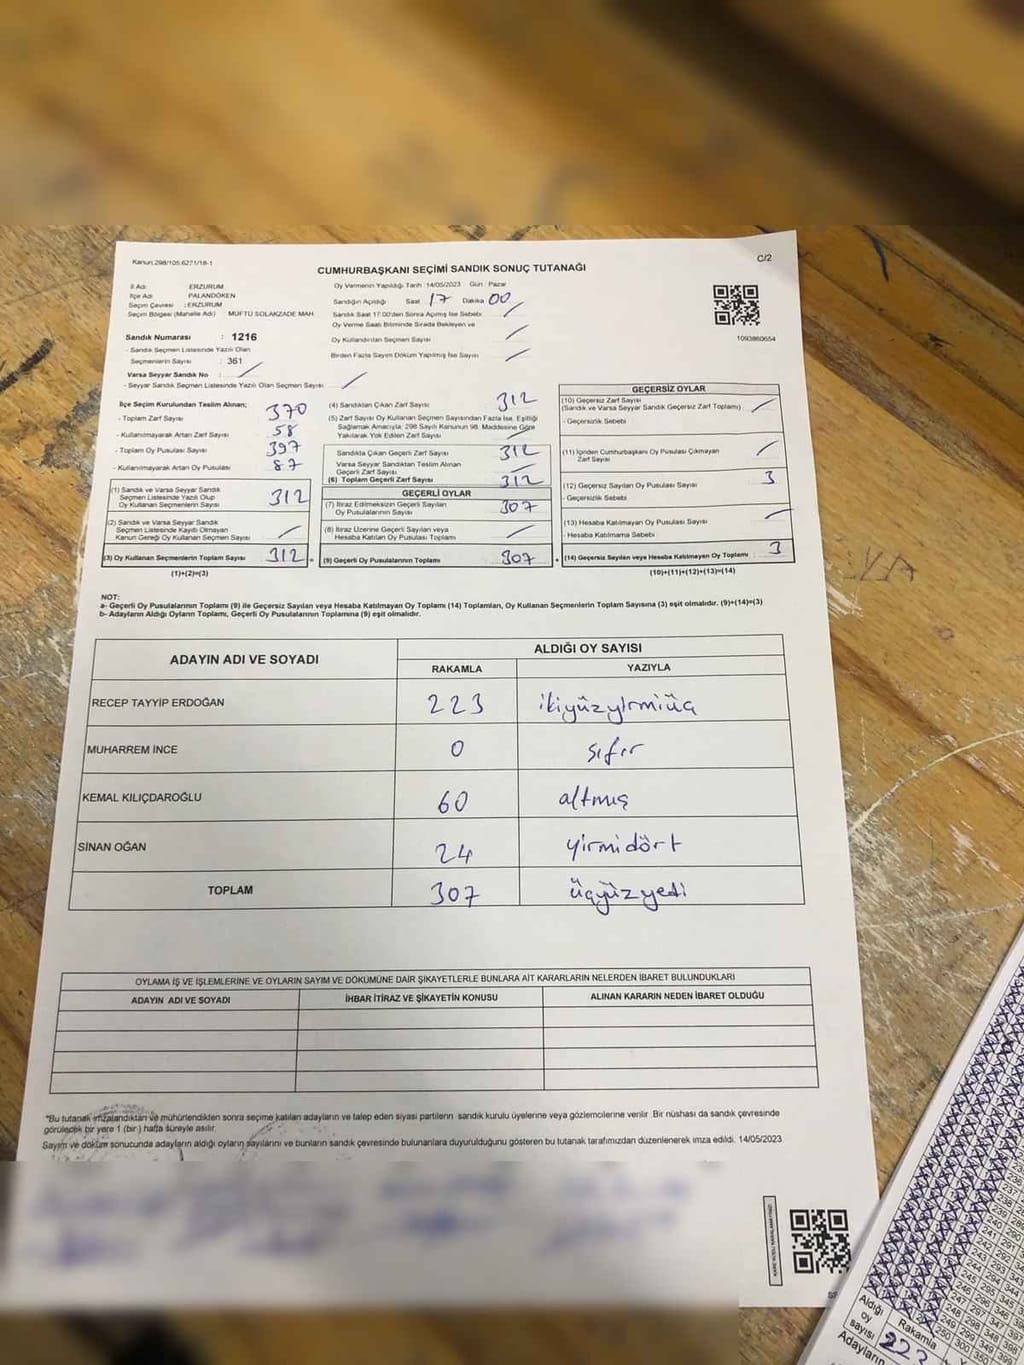 Kanun:298/105.6271/18-1
C/2
CUMHURBAŞKANI SEÇİMİ SANDIK SONUÇ TUTANAĞI
İl Adı : ERZURUM
İlçe Adı : PALANDÖKEN
Seçim Çevresi : ERZURUM
Seçim Bölgesi (Mahalle Adı) : MÜFTÜ SOLAKZADE MAH
Sandık Numarası : 1216
- Sandık Seçmen Listesinde Yazılı Olan
Seçmenlerin Sayısı : 361
Varsa Seyyar Sandık No :
- Seyyar Sandık Seçmen Listesinde Yazılı Olan Seçmen Sayısı
Oy Vermenin Yapıldığı Tarih : 14/05/2023 Gün : Pazar
Sandığın Açıldığı Saat 17 Dakika 00
Sandık Saat 17:00'den Sonra Açılmış İse Sebebi
Oy Verme Saati Bitiminde Sırada Bekleyen ve
Oy Kullandırılan Seçmen Sayısı
Birden Fazla Sayım Döküm Yapılmış İse Sayısı
1093860654
İlçe Seçim Kurulundan Teslim Alınan;
- Toplam Zarf Sayısı 370
- Kullanılmayarak Artan Zarf Sayısı 58
- Toplam Oy Pusulası Sayısı 397
- Kullanılmayarak Artan Oy Pusulası 87
(1) Sandık ve Varsa Seyyar Sandık
Seçmen Listesinde Yazılı Olup
Oy Kullanan Seçmenlerin Sayısı 312
(2) Sandık ve Varsa Seyyar Sandık
Seçmen Listesinde Kayıtlı Olmayan
Kanun Gereği Oy Kullanan Seçmen Sayısı
(3) Oy Kullanan Seçmenlerin Toplam Sayısı 312
(1)+(2)=(3)
(4) Sandıktan Çıkan Zarf Sayısı 312
(5) Zarf Sayısı Oy Kullanan Seçmen Sayısından Fazla İse, Eşitliği
Sağlamak Amacıyla; 298 Sayılı Kanunun 98. Maddesine Göre
Yakılarak Yok Edilen Zarf Sayısı
Sandıkta Çıkan Geçerli Zarf Sayısı 312
Varsa Seyyar Sandıktan Teslim Alınan
Geçerli Zarf Sayısı
(6) Toplam Geçerli Zarf Sayısı 312
GEÇERLİ OYLAR
(7) İtiraz Edilmeksizin Geçerli Sayılan
Oy Pusulalarının Sayısı 307
(8) İtiraz Üzerine Geçerli Sayılan veya
Hesaba Katılan Oy Pusulası Toplamı
(9) Geçerli Oy Pusulalarının Toplamı 307
GEÇERSİZ OYLAR
(10) Geçersiz Zarf Sayısı
(Sandık ve Varsa Seyyar Sandık Geçersiz Zarf Toplamı)
- Geçersizlik Sebebi
(11) İçinden Cumhurbaşkanı Oy Pusulası Çıkmayan
Zarf Sayısı
(12) Geçersiz Sayılan Oy Pusulası Sayısı 3
- Geçersizlik Sebebi
(13) Hesaba Katılmayan Oy Pusulası Sayısı
- Hesaba Katılmama Sebebi
(14) Geçersiz Sayılan veya Hesaba Katılmayan Oy Toplamı 3
(10)+(11)+(12)+(13)=(14)
NOT:
a- Geçerli Oy Pusulalarının Toplamı (9) ile Geçersiz Sayılan veya Hesaba Katılmayan Oy Toplamı (14) Toplamları, Oy Kullanan Seçmenlerin Toplam Sayısına (3) eşit olmalıdır. (9)+(14)=(3)
b- Adayların Aldığı Oyların Toplamı, Geçerli Oy Pusulalarının Toplamına (9) eşit olmalıdır.
ADAYIN ADI VE SOYADI
ALDIĞI OY SAYISI
RAKAMLA YAZIYLA
RECEP TAYYİP ERDOĞAN 223 ikiyüzyirmiüç
MUHARREM İNCE 0 sıfır
KEMAL KILIÇDAROĞLU 60 altmış
SİNAN OĞAN 24 yirmidört
TOPLAM 307 üçyüzyedi
OYLAMA İŞ VE İŞLEMLERİNE VE OYLARIN SAYIM VE DÖKÜMÜNE DAİR ŞİKAYETLERLE BUNLARA AİT KARARLARIN NELERDEN İBARET BULUNDUKLARI
ADAYIN ADI VE SOYADI İHBAR İTİRAZ VE ŞİKAYETİN KONUSU ALINAN KARARIN NEDEN İBARET OLDUĞU
*Bu tutanak imzalandıktan ve mühürlendikten sonra seçime katılan adayların ve talep eden siyasi partilerin sandık kurulu üyelerine veya gözlemcilerine verilir. Bir nüshası da sandık çevresinde
görülecek bir yere 1 (bir) hafta süreyle asılır.
Sayım ve döküm sonucunda adayların aldığı oyların sayılarını ve bunların sandık çevresinde bulunanlara duyurulduğunu gösteren bu tutanak tarafımızdan düzenlenerek imza edildi. 14/05/2023
Aldığı
oy
sayısı
Rakamla
223